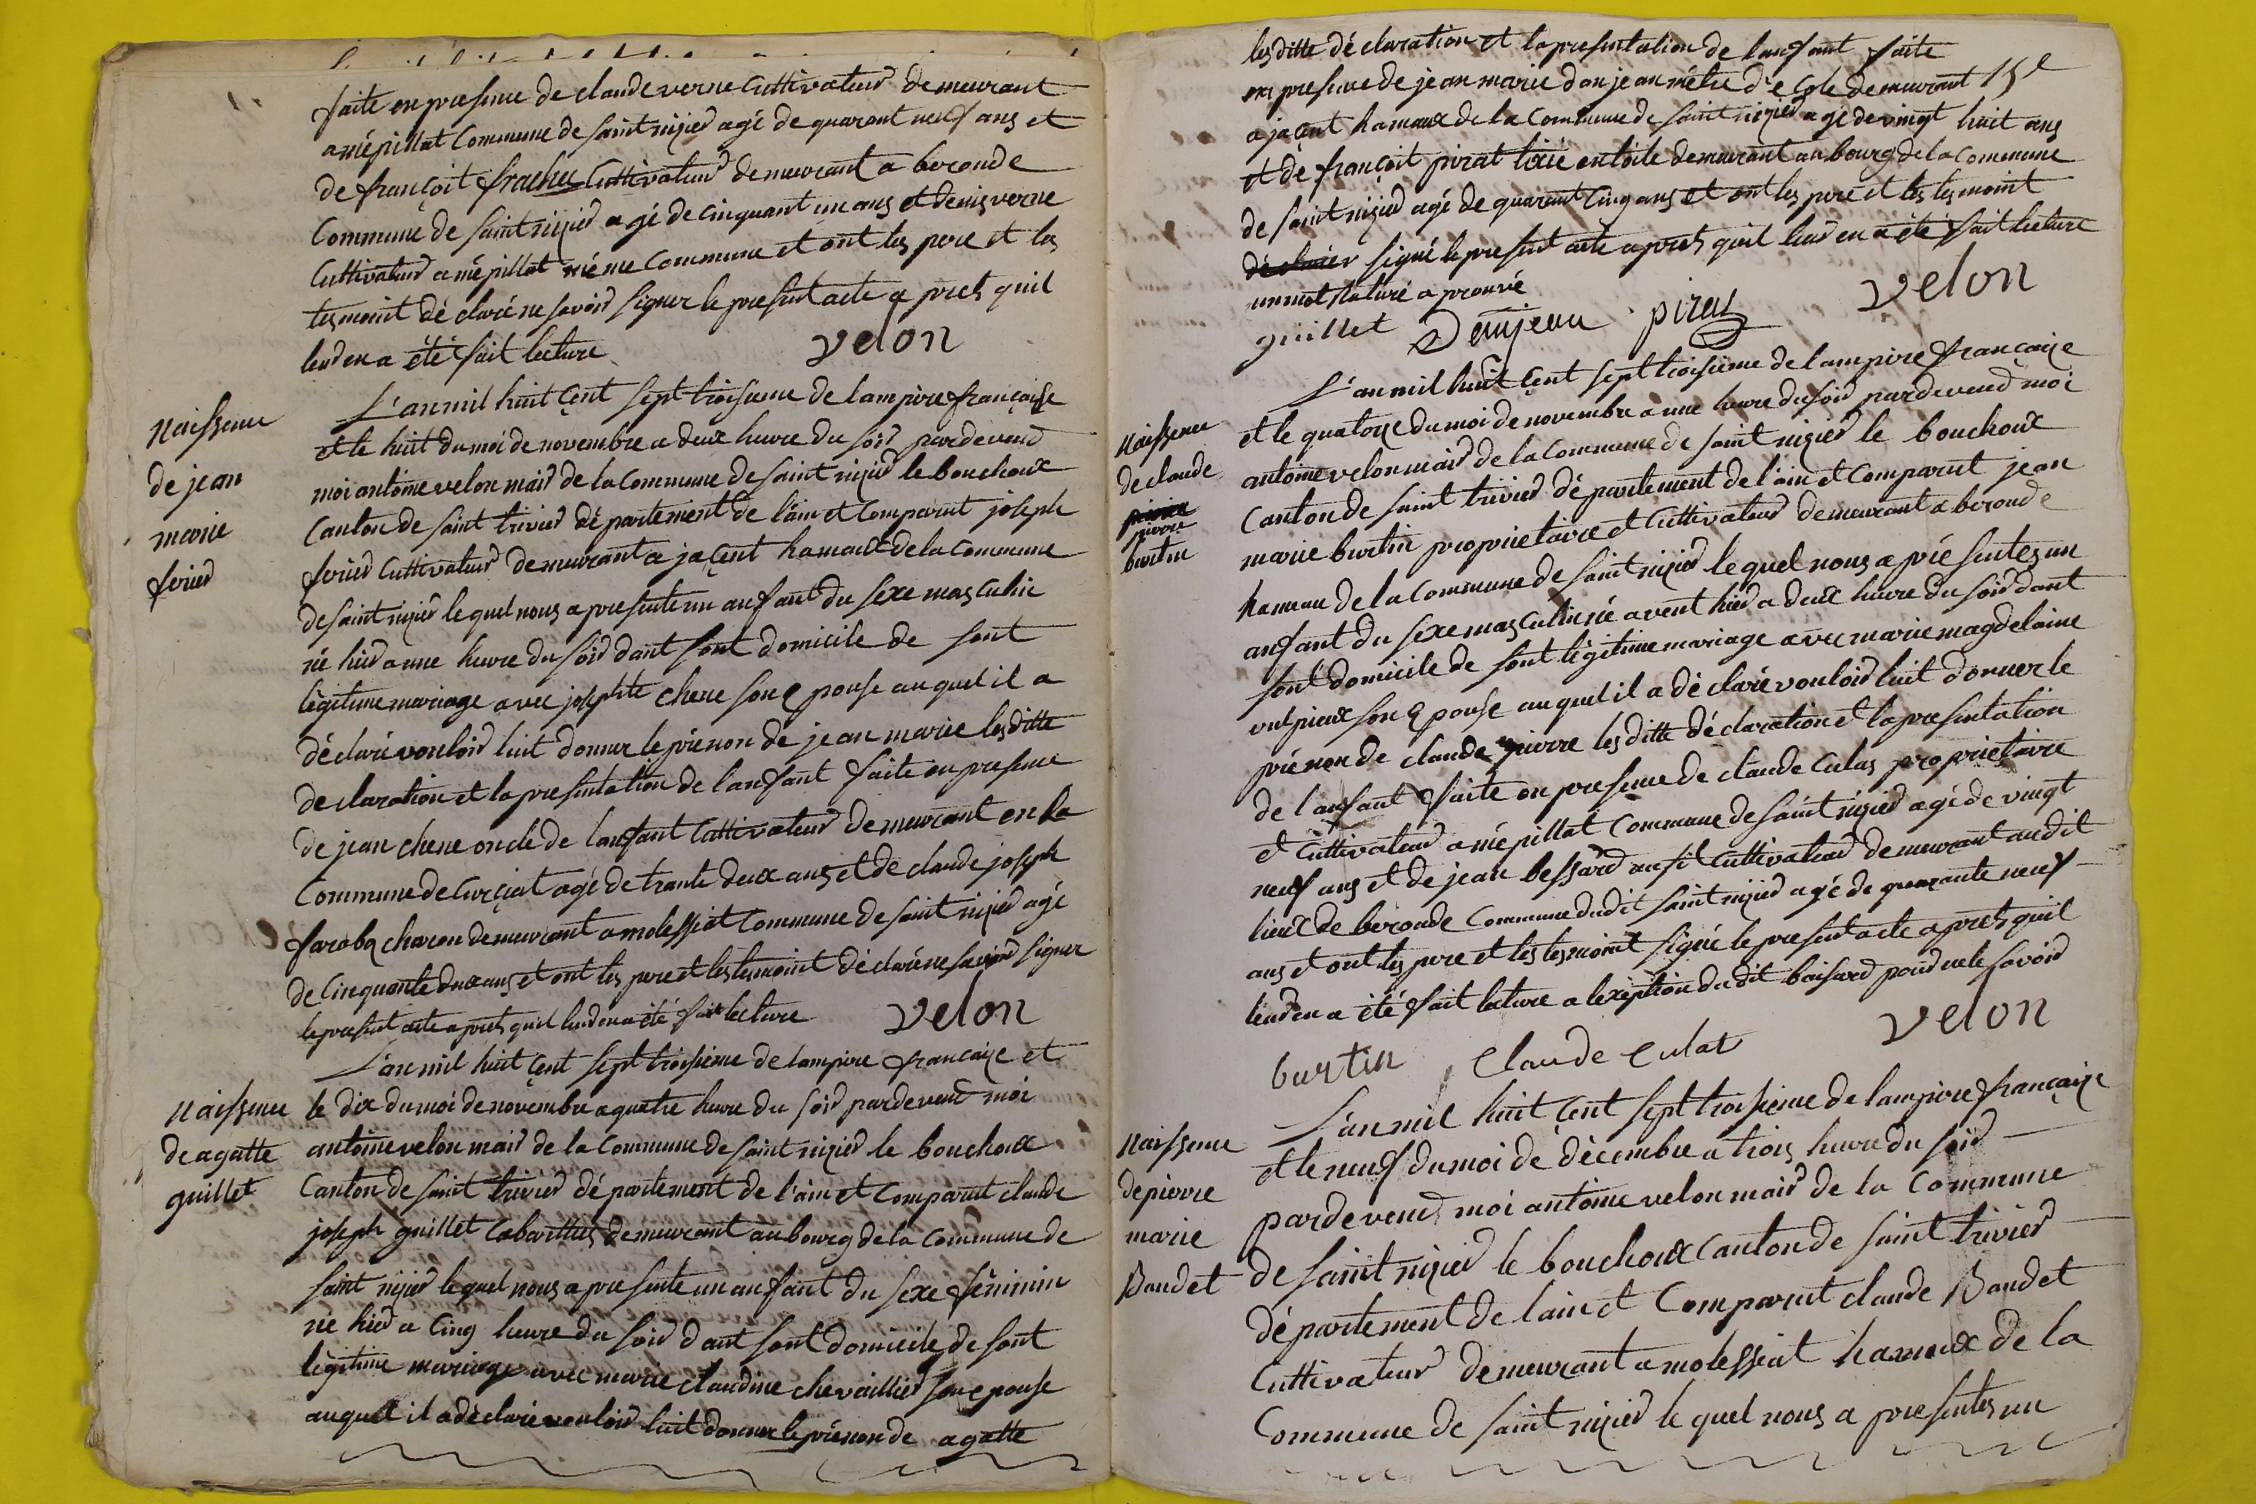 faite en presence de claude verne Cuttivateur demeurant
a mépillat Commune de saint nizier agé de quarant neuf ans et
de françoit frachet Cuttivateur demeurant a beronde
Commune de saint nizier agé de cinquant un ans et denis verne
Cuttivateur a mépillat méme Commune et ont les pere et les
tesmoint déclaré ne savoir signer le present acte a preh quil
leur en a été fait lecture
velon
Naissence
de jean
marie
ferier
L'an mil huit çent sept troisieme de lampire françaize
et le huit du moi de novembre a deux heure du soir pardevend
moi antoine velon mair de la Commune de saint nizier le bouchoux
Canton de saint trivier département de l'ain et Comparut joseph
ferier Cuttivateur demeurant a jaçent hamaux de la Commune
de saint nizier le quel nous a presente un anfant du sexe masculin
né hier a une heure du soir dant sont domicile de sont
légitime mariage avec josephte chene son epouse au quel il a
déclaré vouloir luit donner le prénon de jean marie lesditte
declaration et la presentation de lanfant faite en presence
de jean chene oncle de lanfant Cuttivateur demeurant en la
Commune de Curçiat agé de trante deux ans et de claude joseph
charon demeurant a molessiat Commune de saint nizier agé
de Cinquante deux ans et ont les pere et les tesmoint déclaré ne savoir signer
le present acte a preh quil leur en a été fait lecture
velon
Naissence
de agatte
guillet
L'an mil huit çent sept troisieme de lampire françaize et
le dix du moi de novembre a quatre heure du soir pardevend moi
antoine velon mair de la Commune de saint nizier le bouchoux
Canton de saint trivier département de l'ain et Comparut claude
joseph guillet Cabarttier demeurant au bourg de la Commune de
saint nizier le quel nous a presente un anfant du sexe féminin
né hier a Cinq heure du soir dant sont domicile de sont
légitime mariage avec marie claudine chevaillier son epouse
au quel il a déclaré vouloir luit donner le prénon de agatte
lesditte déclaration et la presentation de lanfant faite
en presence de jean marie danjean métre d'ecole demeurant
15e
a jaçent hamaux de la Commune de saint nizier agé de vingt huit ans
et de françoit pirat tixié en toile demeurant au bourg de la Commune
de saint nizier agé de quarant Cinq ans et ont les pere et les tesmoint
signé le present acte a preh quil leur en a été fait lecture
un mot raturé a prouvé
velon
guillet Danjean pirat
Naissence
de claude
pierre
burtin
L'an mil huit çent sept troisieme de lampire françaize
et le quatorze du moi de novembre a une heure du soir pardevend moi
antoine velon mair de la Commune de saint nizier le bouchoux
Canton de saint trivier département de l'ain et Comparut jean
marie burtin proprietaire et Cuttivateur demeurant a beronde
hameau de la Commune de saint nizier le quel nous a présentez un
anfant du sexe masculin né avent hier a deux heure du soir dant
sont domicile de sont légitime mariage avec marie magdelaine
vulpieux son epouse au quel il a déclaré vouloir luit donner le
prénon de claude pierre lesditte déclaration et la presentation
de lanfant faite en presence de claude Culas proprietaire
et Cuttivateur a mépillat Commune de saint nizier agé de vingt
neuf ans et de jean bessard ausit Cuttivateur demeurant audit
lieux de beronde Commune dudit saint nizier agé de quarante neuf
ans et ont les pere et les tesmoint signé le present acte a preh quil
leur en a été fait lecture a lexeption dudit baisard pour ne le savoir
velon
burtin claude culat
Naissence
de pierre
marie
Baudet
L'an mil huit çent sept troisieme de lampire françaize
et le neuf du moi de décembre a trois heure du soir
pardevend moi antoine velon mair de la Commune
de saint nizier le bouchoux Canton de saint trivier
département de lain et Comparut claude Baudet
Cuttivateur demeurant a molessiat hameaux de la
Commune de saint nizier le quel nous a presentez un